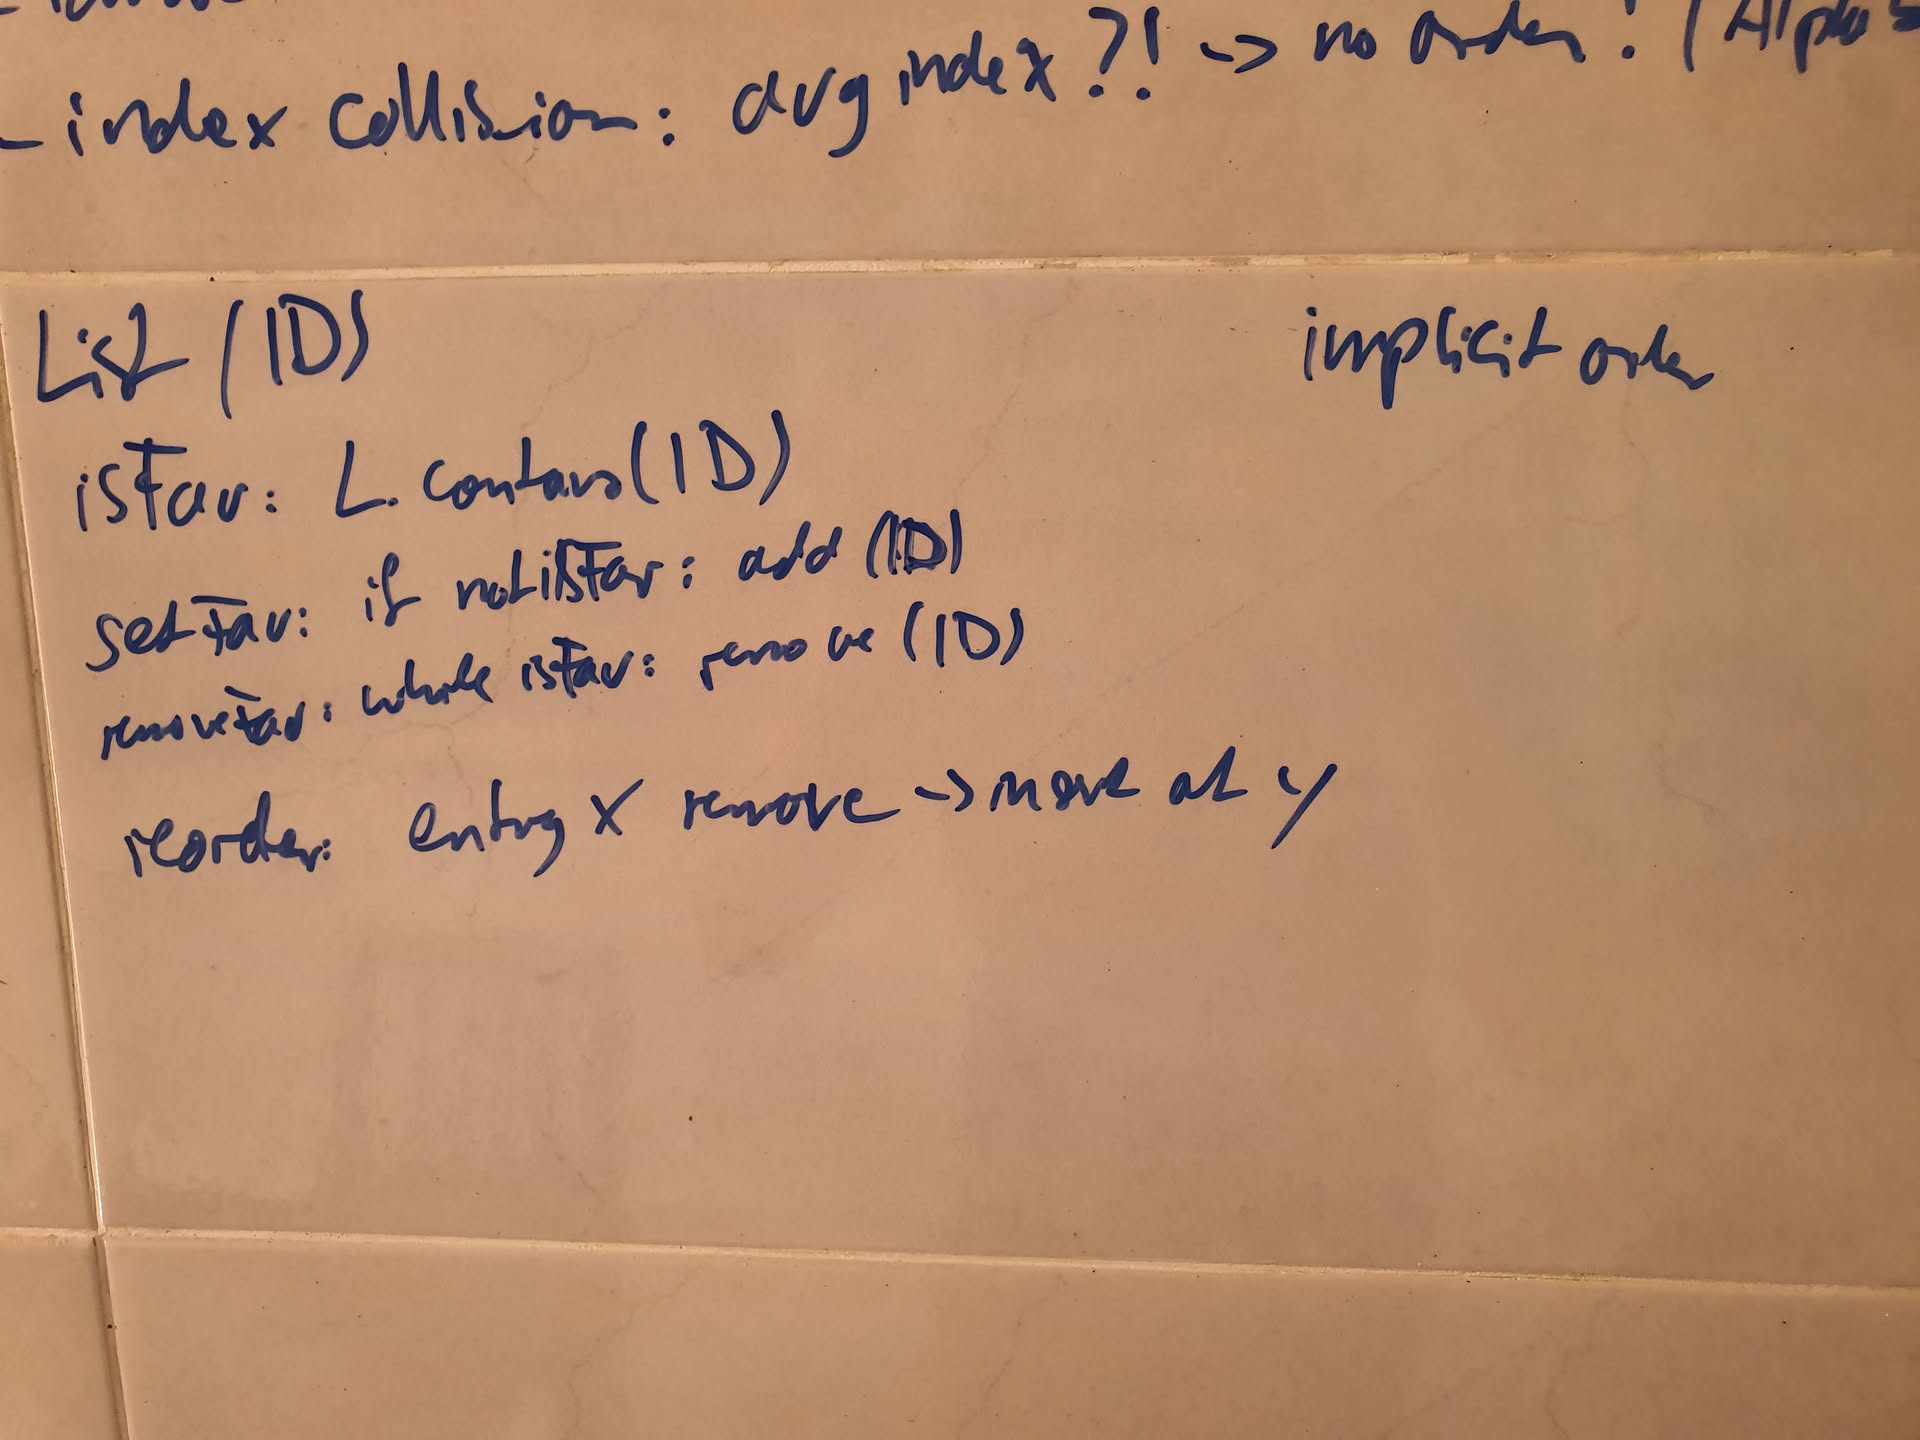 - index collision: avg index?! -> no order! (Alpha
List (ID)
implicit order
isFav: L. contains(ID)
setFav: if not isFav: add (ID)
removeFav: while isFav: remove (ID)
reorder: entry x remove -> move at y